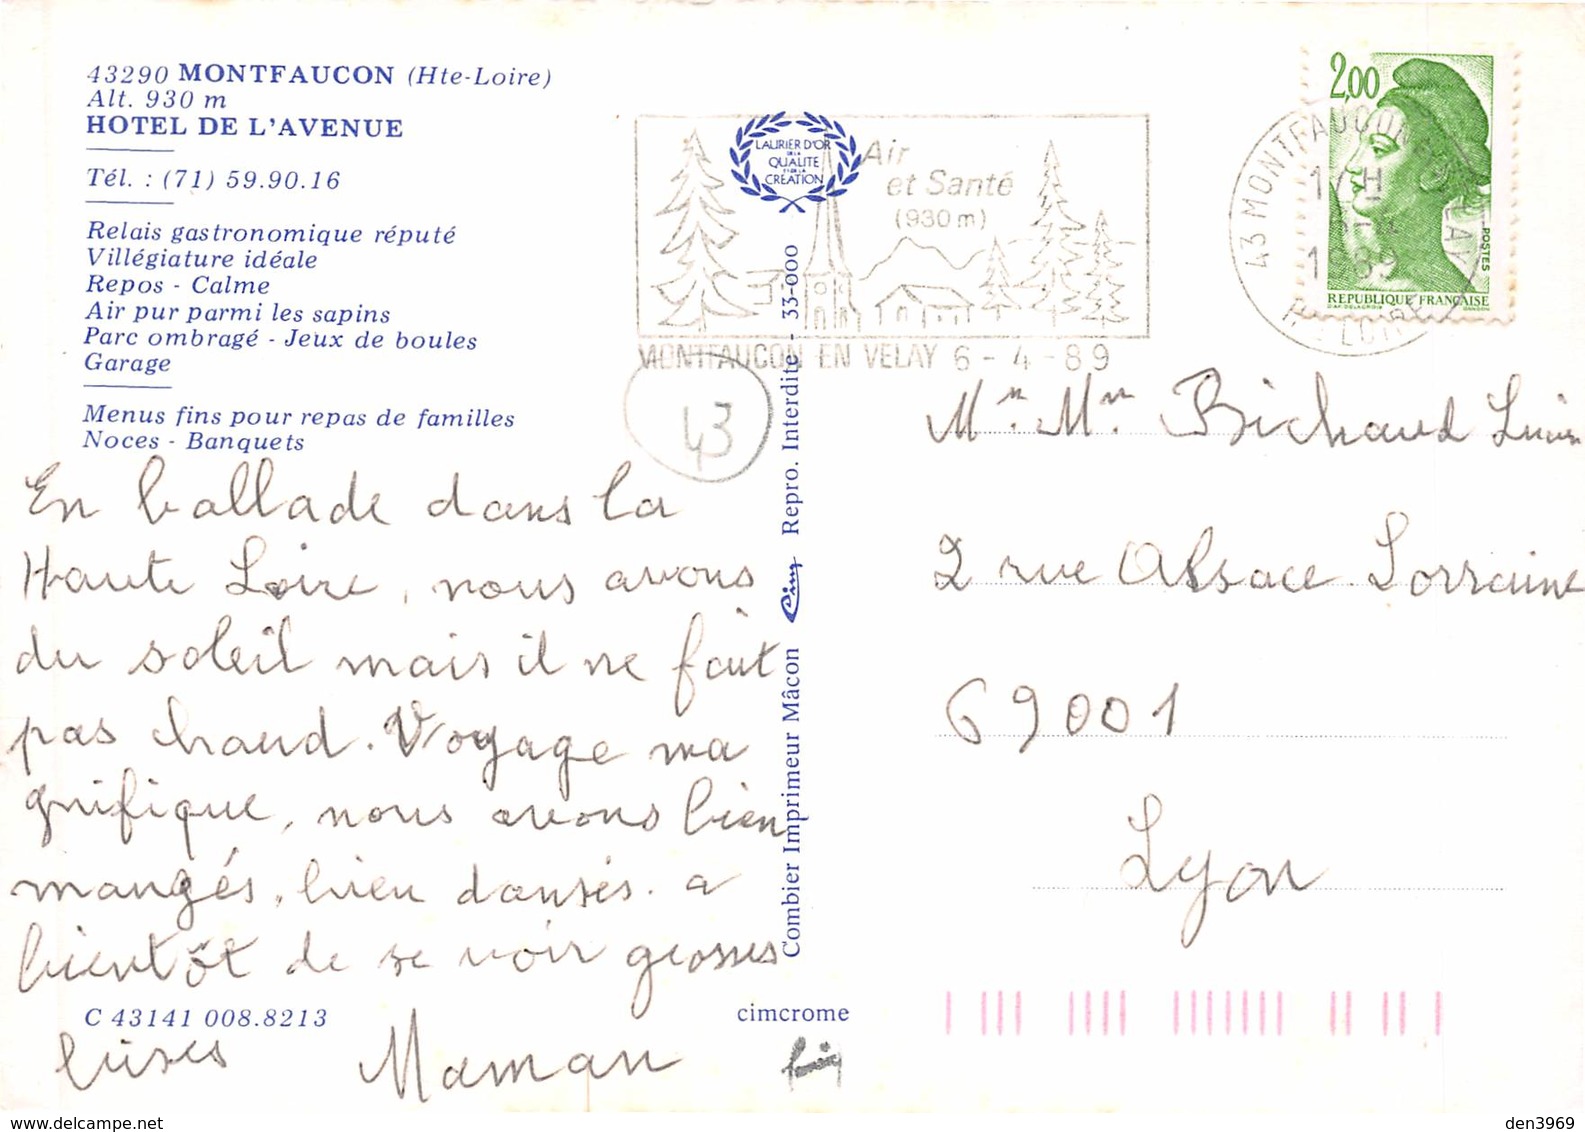 43290 MONTFAUCON (Hte-Loire)
Alt. 930 m
HOTEL DE L'AVENUE
Tél. : (71) 59.90.16
Relais gastronomique réputé
Villégiature idéale
Repos - Calme
Air pur parmi les sapins
Parc ombragé - Jeux de boules
Garage
Menus fins pour repas de familles
Noces - Banquets
En ballade dans la
Haute Loire, nous avons
du soleil mais il ne fait
pas chaud. Voyage ma
gnifique, nous avons bien
mangés, bien dansés. a
bientôt de se voir grosses
bises Maman
C 43141 008.8213
cimcrome
LAURIER D'OR
DE LA
QUALITE
ET DE LA
CREATION
Air
et Santé
(930 m)
MONTFAUCON EN VELAY 6 - 4 - 89
43
Combier Imprimeur Mâcon Cim Repro. Interdite - 33-000
2,00
POSTES
REPUBLIQUE FRANÇAISE
43 MONTFAUCON
1989
Bichaud
2 rue Alsace Lorraine
69001
Lyon
den3969